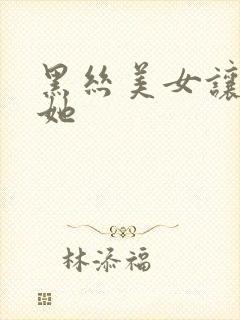 黑丝美女讓
她
林添福